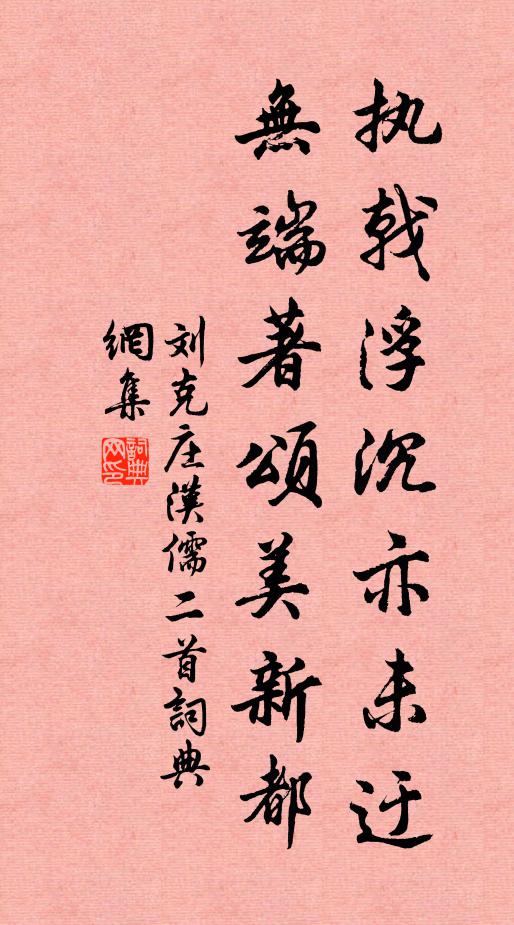 执戟浮沉亦未迂
無端著頌美新都
刘克庄漢儒二首詞典
網集
詞典
网印